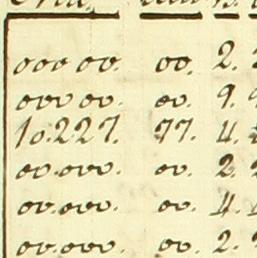 ooo oo. oo. 2.
ooo oo. oo. 9.
10.227. 77. 4.
oo.ooo. oo. 2.
oo.ooo. oo. 4.
oo.ooo. oo. 2.